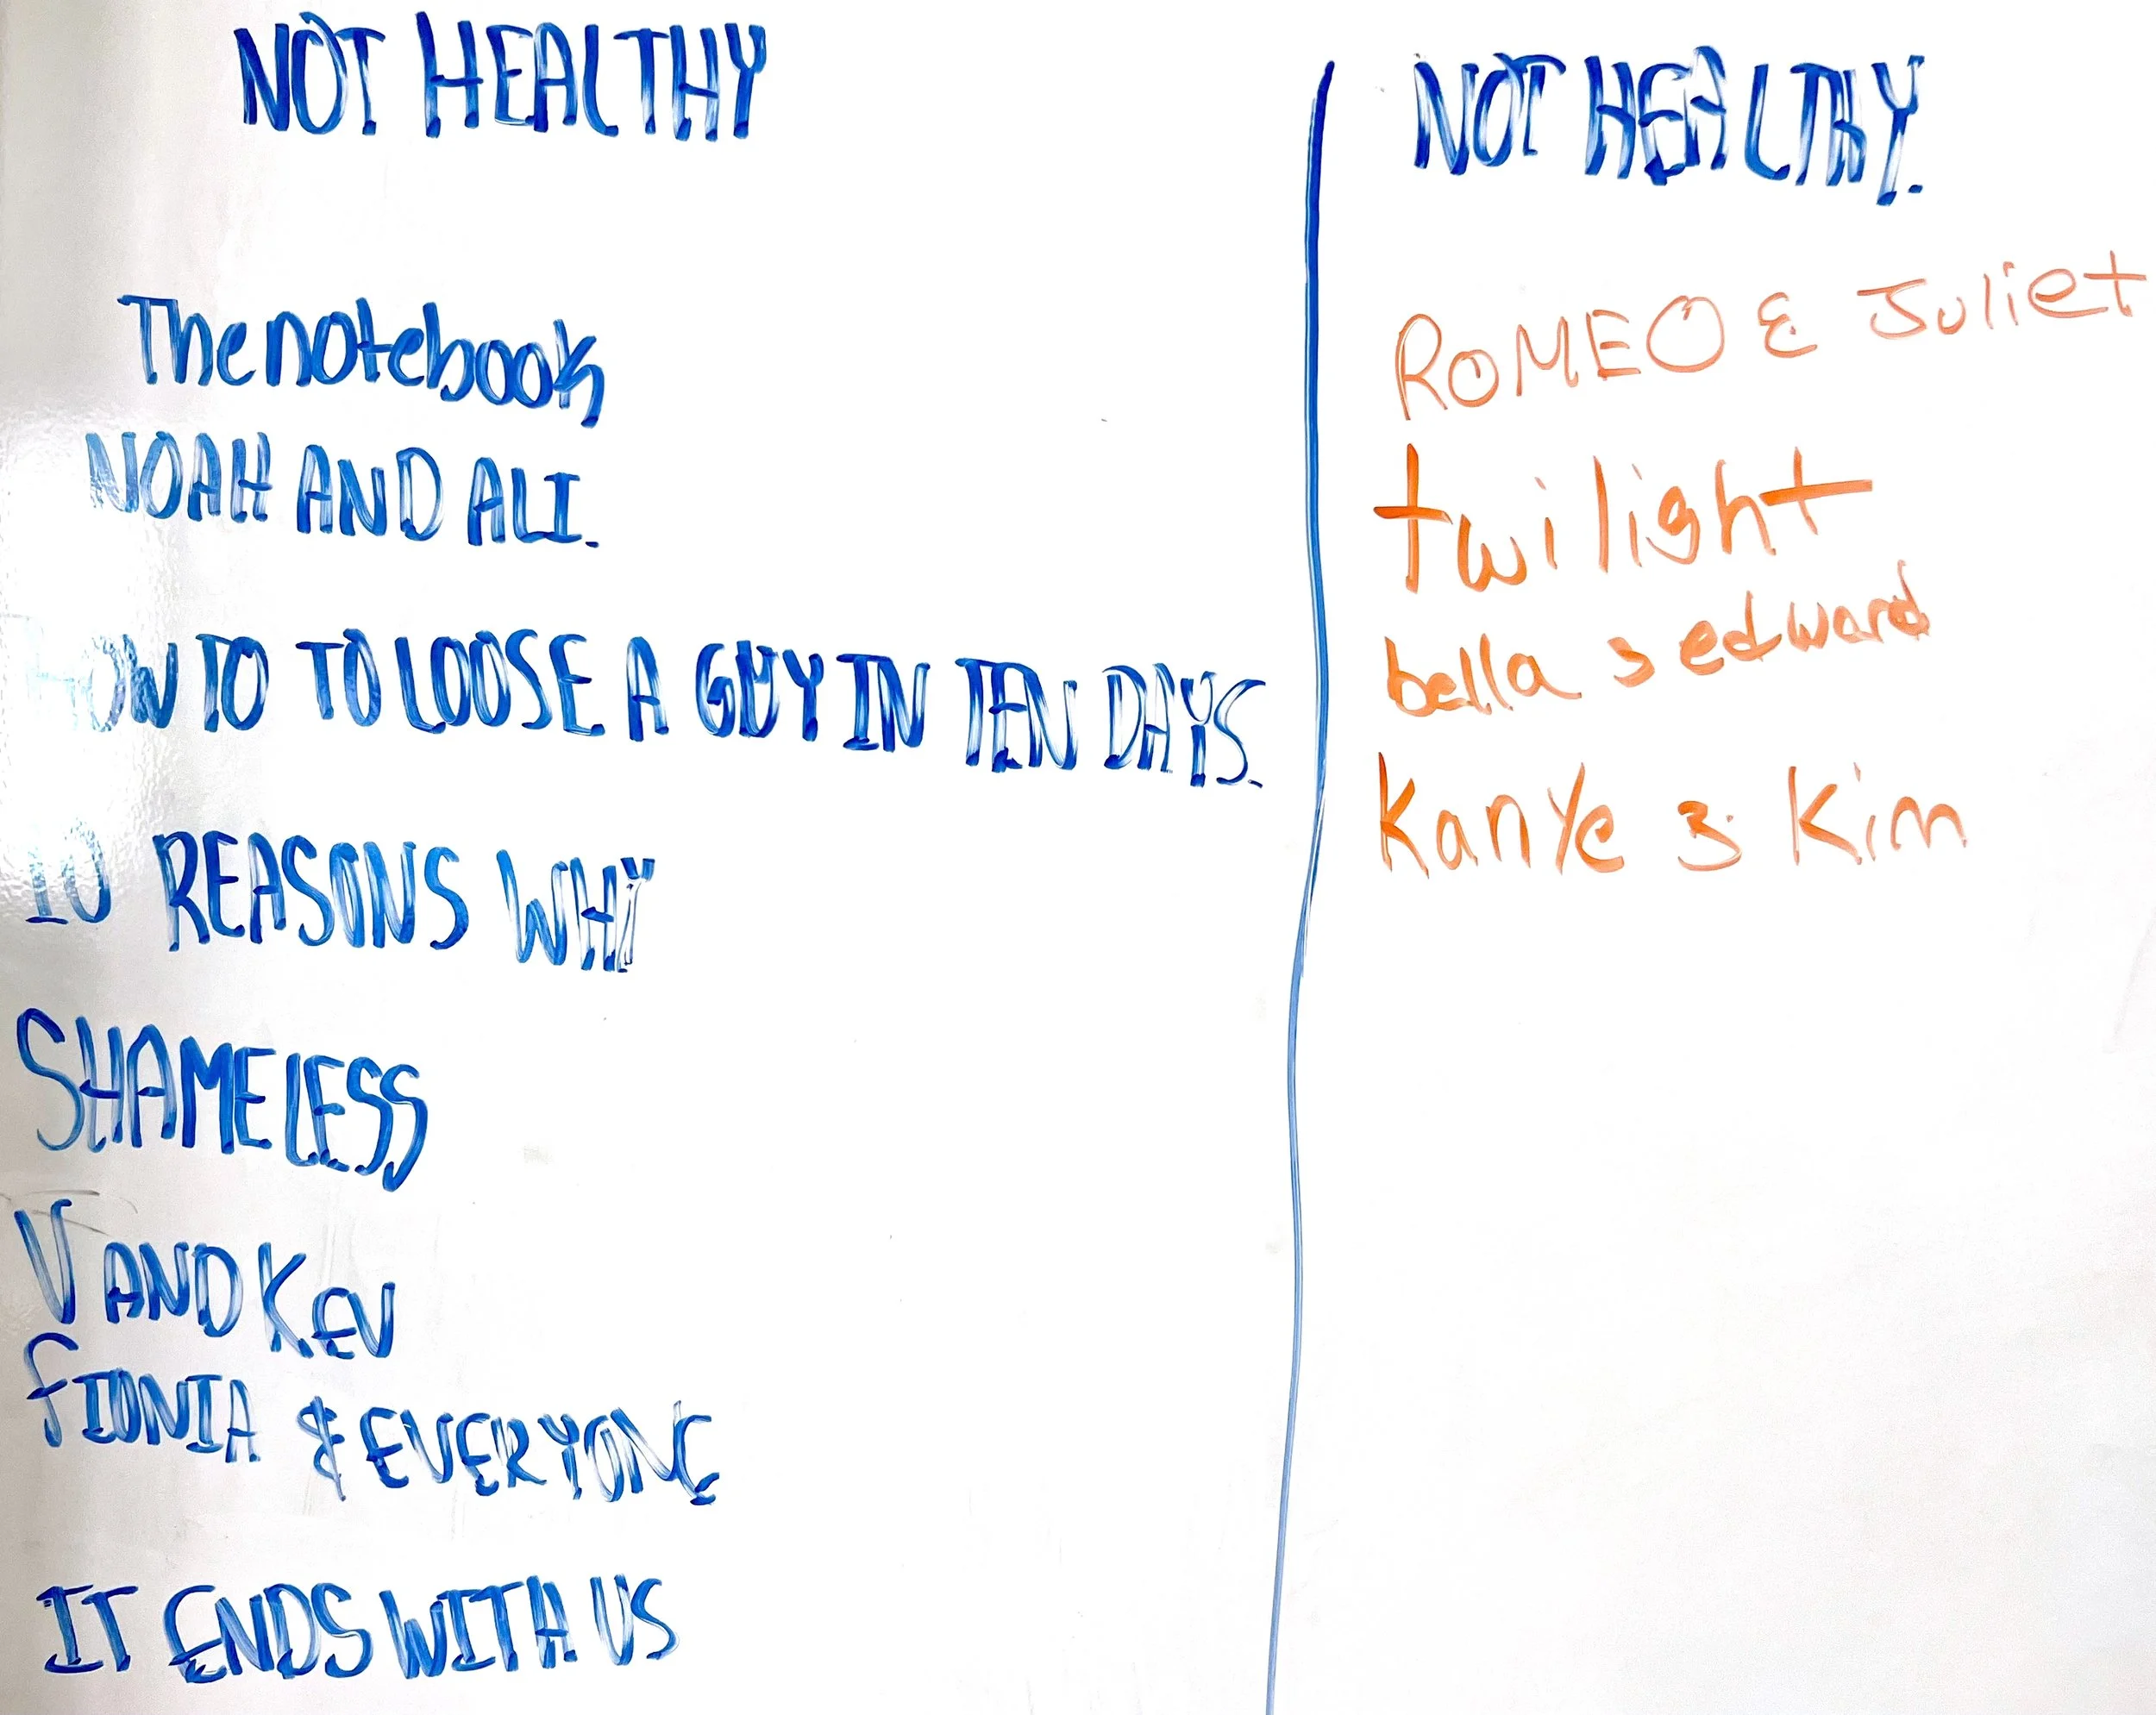 NOT HEALTHY
The notebook
NOAH AND ALI.
HOW TO TO LOOSE A GUY IN TEN DAYS.
10 REASONS WHY
SHAMELESS
V AND KEV
FIONIA & EVERYONE
IT ENDS WITH US
NOT HEALTHY.
ROMEO & Juliet
twilight
bella & edward
Kanye & Kim